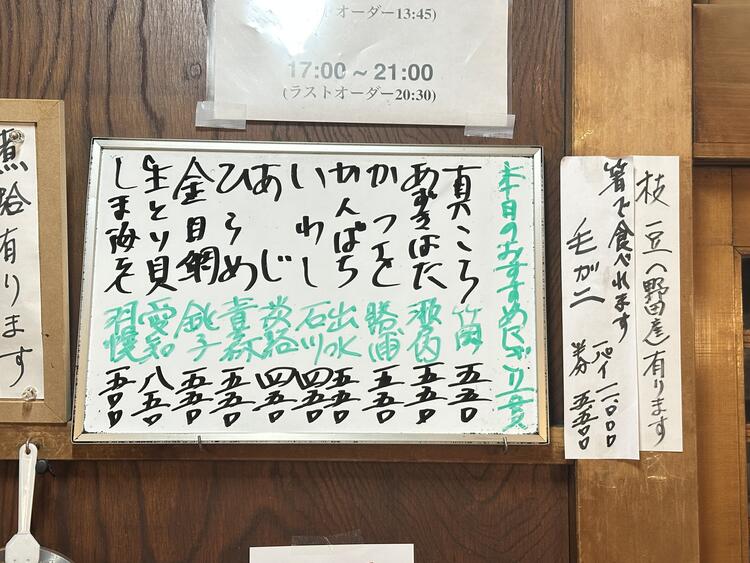 ストオーダー13:45)
17:00～21:00
(ラストオーダー20:30)
枝豆(野田産)有ります
箸で食べれます
毛がに
一パイ
半分 五五〇
本日のおすすめにぎり一貫
真こち 竹岡 五五〇
あずきはた 五五〇
かつを 勝浦 五五〇
かんぱち 出水 五五〇
いわし 石川 四五〇
あじ 淡路 四五〇
ひらめ 青森 五五〇
金目鯛 銚子 五五〇
生とり貝 愛知 八五〇
しま海老 羽幌 五五〇
煮蛤有ります